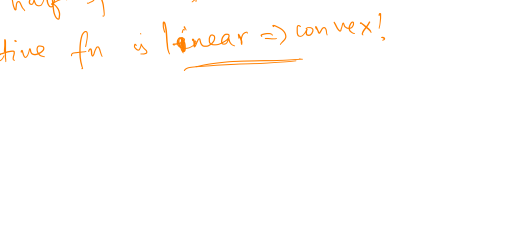 half
tive fn is linear => convex!